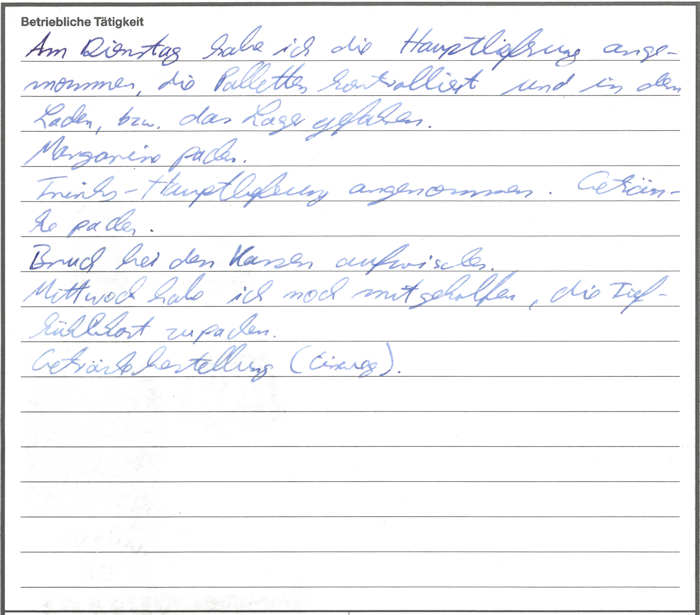 Betriebliche Tätigkeit
Am Dienstag habe ich die Hauptlieferung ange-
nommen, die Palletten kontrolliert und in den
Laden, bzw. das Lager gefahren.
Margarine packen.
Trinks-Hauptlieferung angenommen. Geträn-
ke packen.
Bruch bei den Kassen aufwischen.
Mittwoch habe ich noch mitgeholfen, die Tief-
kühlkost zu packen.
Getränkebestellung (Einweg).